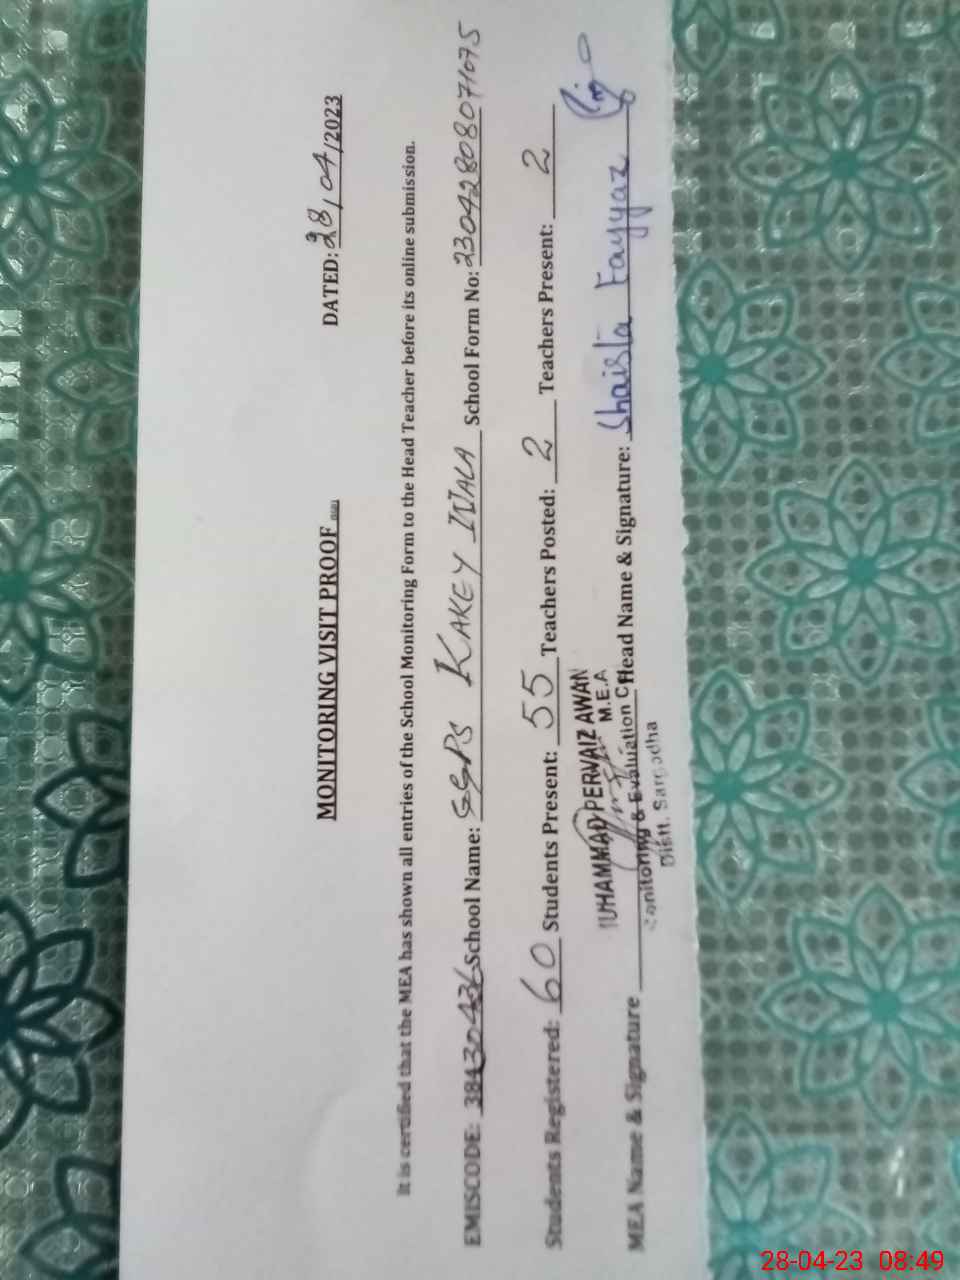 MONITORING VISIT PROOF
DATED: 28/04/2023
It is certified that the MEA has shown all entries of the School Monitoring Form to the Head Teacher before its online submission.
EMISCODE: 38430436 School Name: GGPS KAKEY WALA School Form No: 23042808071075
Students Registered: 60 Students Present: 55 Teachers Posted: 2 Teachers Present: 2
MUHAMMAD PERVAIZ AWAN
M.E.A
MEA Name & Signature Head Name & Signature: Shaista Fayyaz
Monitoring & Evaluation
Distt. Sargodha
28-04-23 08:49